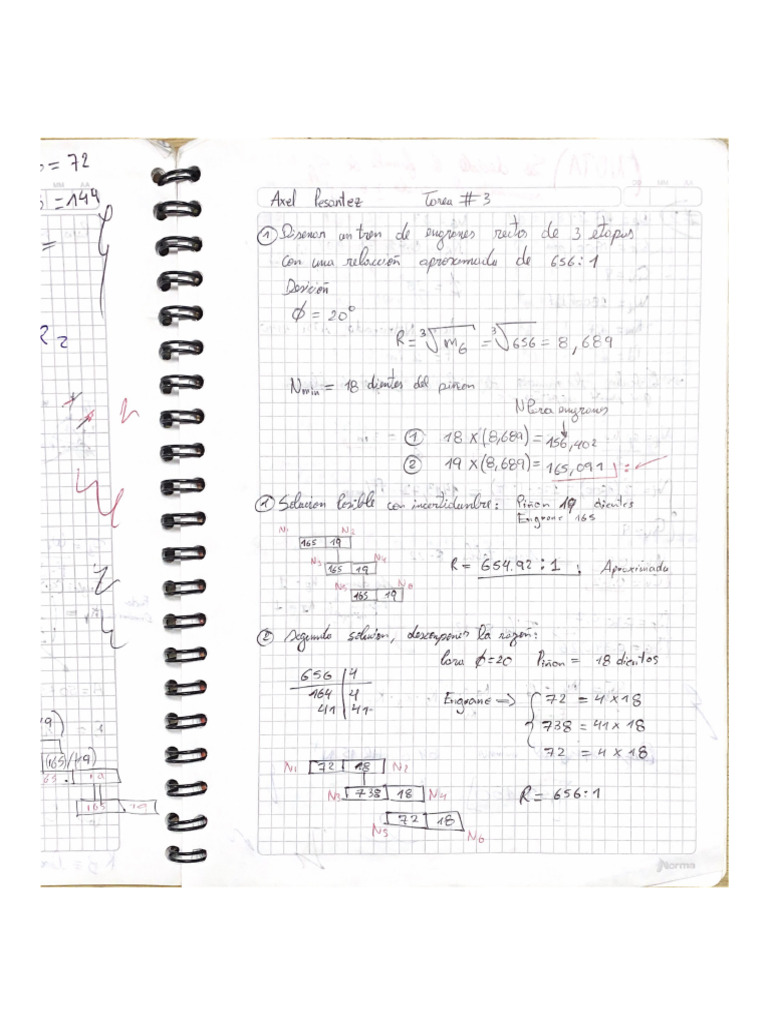 = 72
= 144
=
R =
Axel Pesantez Tarea # 3
① Diseñar un tren de engranes rectos de 3 etapas
con una relacion aproximada de 656:1
ϕ = 20°
R = ³√m₆ = ³√656 = 8,689
Nmin = 18 dientes del piñon
N para engranes
= ① 18 x (8,689) = 156,402
② 19 x (8,689) = 165,091
① Solucion Posible con incertidumbre: Piñon 19 dientes
Engrane 165
N₁ N₂
165 19
N₃ N₄
165 19
N₅ N₆
165 19
R = 654.92 : 1 . Aproximada
② Segunda solucion, descomponer la razon:
Para ϕ=20 Piñon = 18 dientos
656 | 4
164 | 4
41 | 41
Engrane => { 72 = 4 x 18
738 = 41 x 18
72 = 4 x 18
N₁ 72 18 N₂
N₃ 738 18 N₄
N₅ 72 18 N₆
R = 656:1
(165/19)
65. 19
165 19
Norma